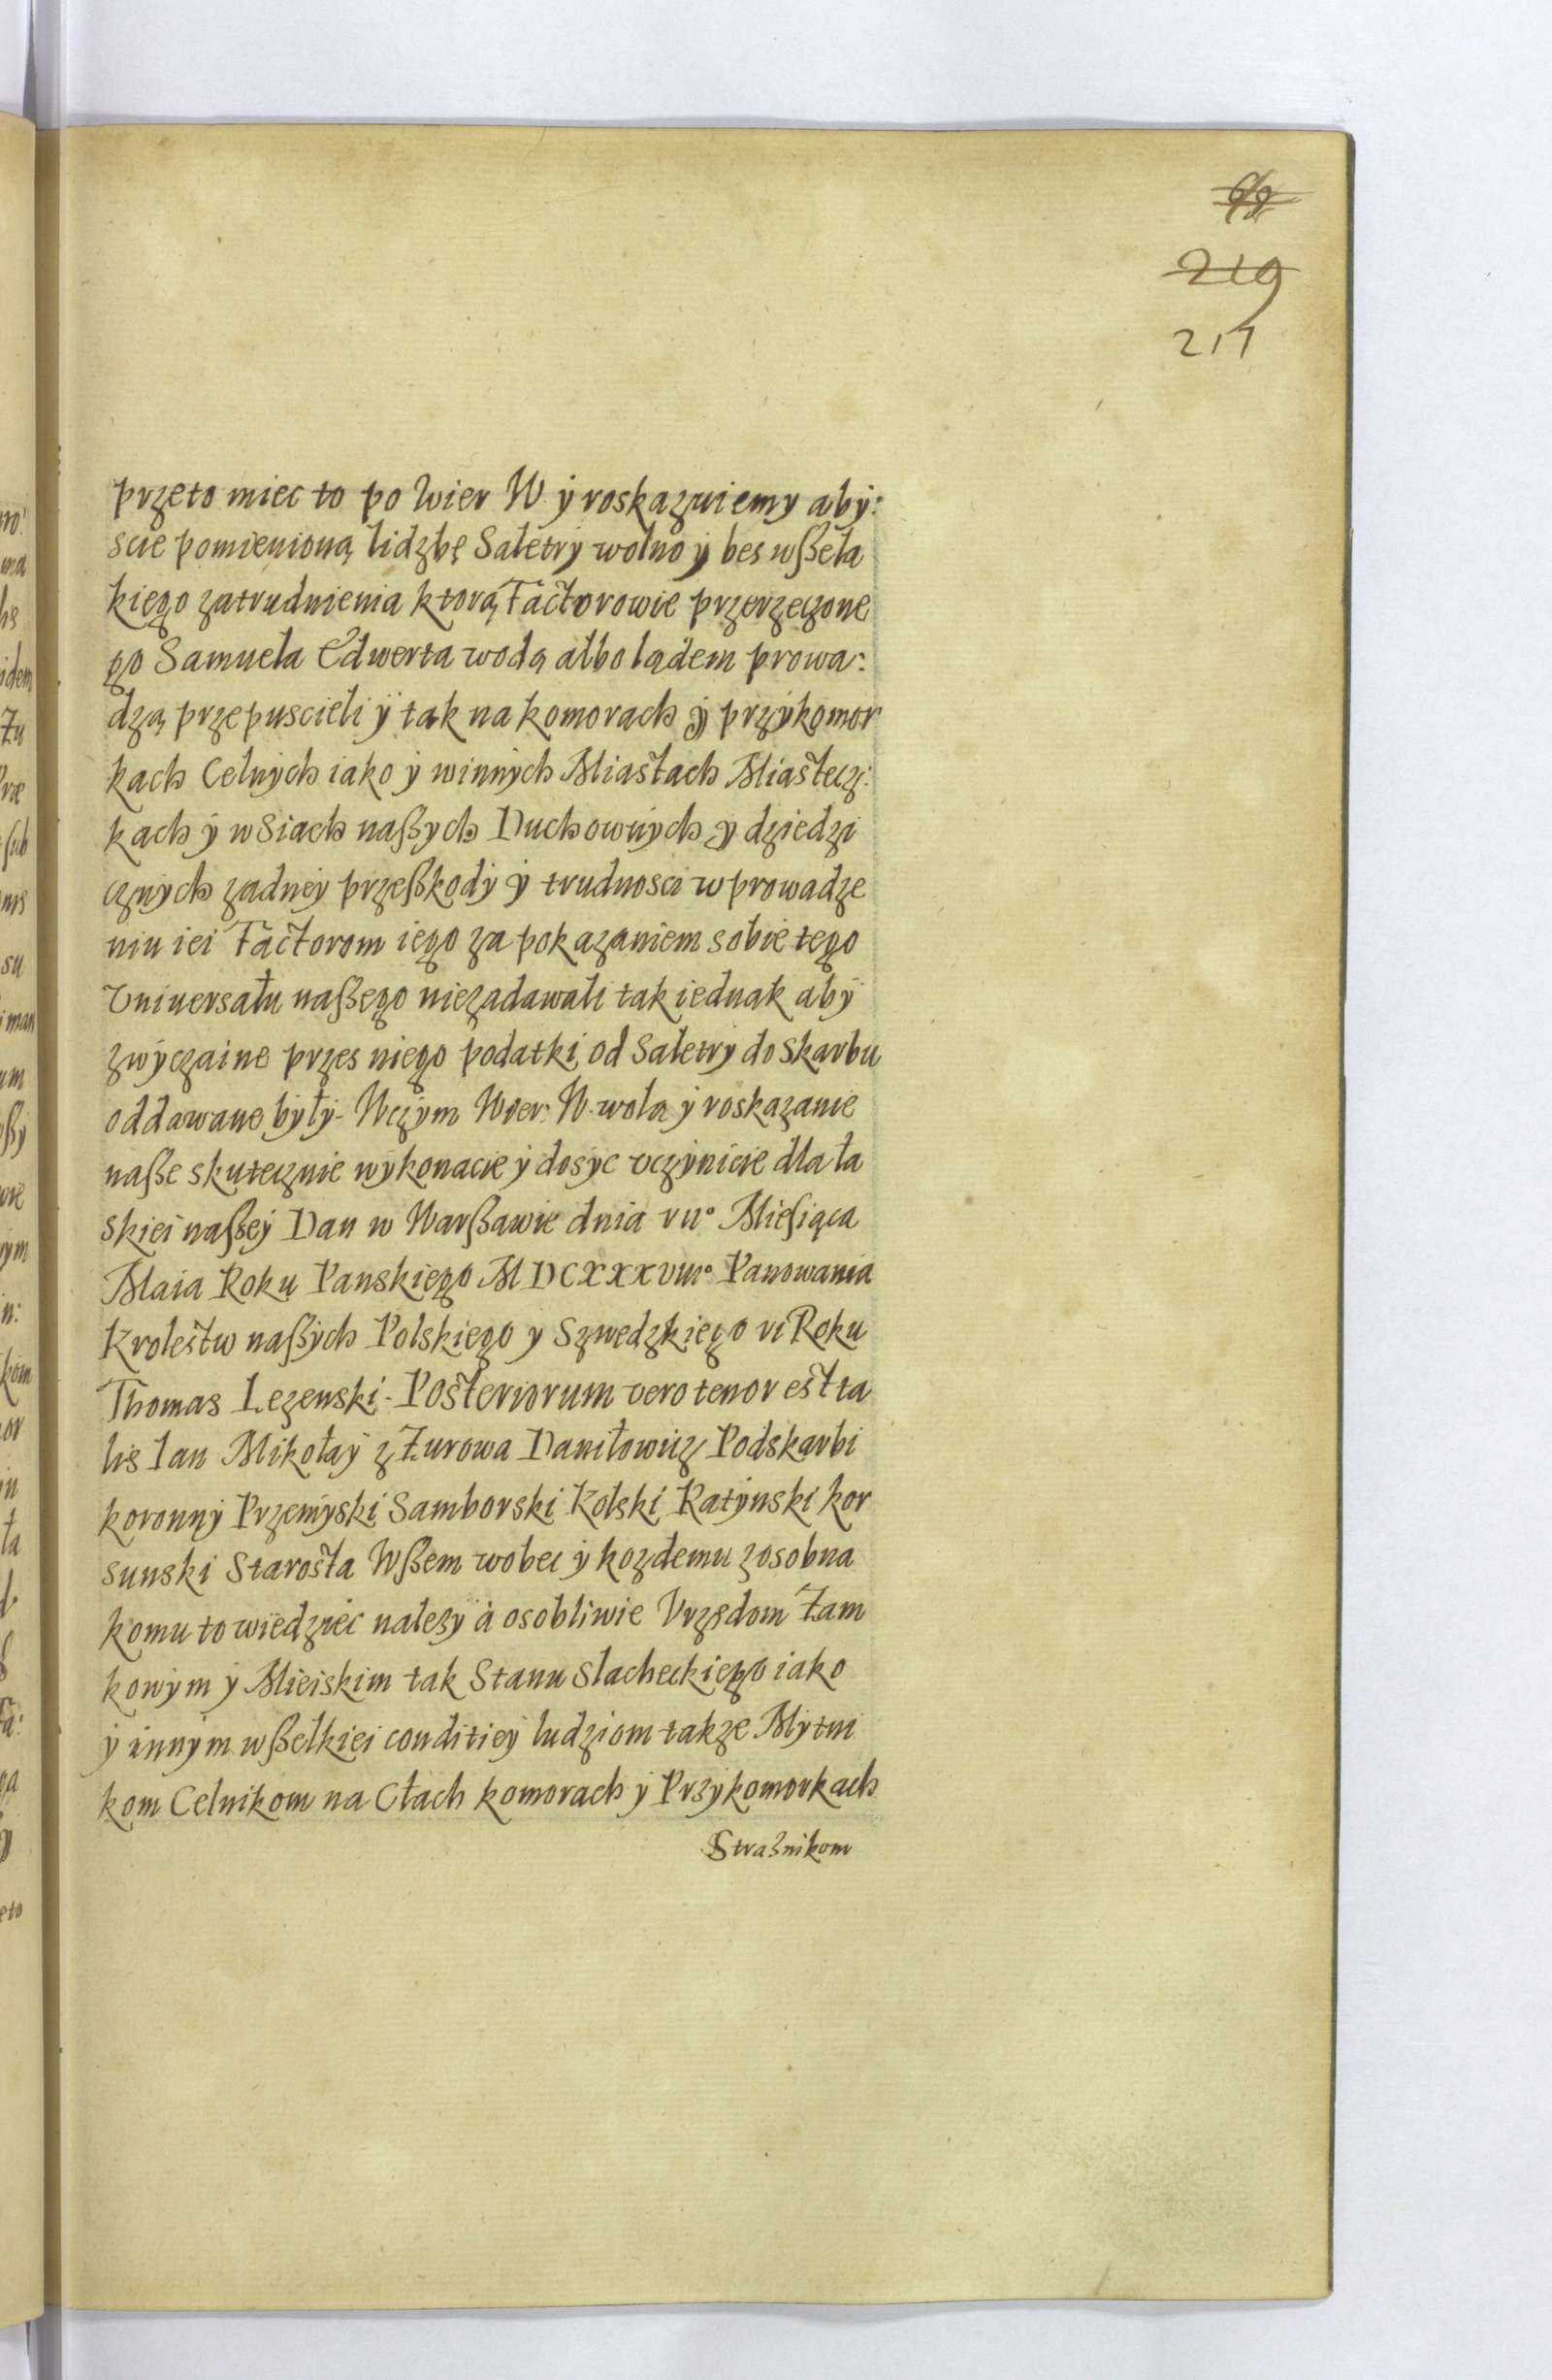 219
217
przeto miec to po Wier W. ÿ roskazuiemy abÿ:
scie pomienioną lidzbę Saletrÿ wolno ÿ bes wßela
kiego zatrudnienia ktorą Factorowie przerzeczone
go Samuela Edwerta wodą albo lądem prowa:
dzą przepuscieli ÿ tak na komorach ÿ przÿkomor
kach Celnÿch iako ÿ winnÿch Miastach Miastecz:
kach ÿ wSiach naßych Duchownÿch ÿ dziedzi
cznÿch zadneÿ przeßkodÿ ÿ trudnosci w prowadze
niu iei Factorom iego za pokazaniem sobie tego
Vniuersału naßego niezadawali tak iednak abÿ
zwÿczaine przes niego podatki od Saletrÿ do Skarbu
oddawane bÿłÿ. Wczÿm Wier. W. wolą ÿ roskazanie
naße skutecznie wÿkonacie ÿ dosÿc vczÿnicie dla ła
skiei naßeÿ Dan w Warßawie dnia VII° Miesiąca
Maia Roku Panskiego MDCXXXVIII° Panowania
Krolestw naßÿch Polskiego y Szwedzkiego VI Roku
Thomas Lezenski. Posteriorum vero tenor est ta
lis Ian Mikołaÿ z Żurowa Daniłowicz Podskarbi
koronnÿ Przemÿski Samborski Kolski Ratÿnski kor
sunski Starosta Wßem wobec ÿ kozdemu zosobna
komu to wiedziec nalezÿ à osobliwie Vrzędom Zam
kowÿm ÿ Mieiskim tak Stanu Slacheckiego iako
ÿ innÿm wßelkiei conditieÿ ludziom takze Mÿtni
kom Celnikom na Cłach komorach ÿ Przÿkomorkach
Strażnikom